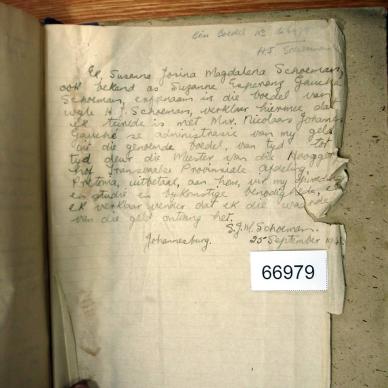 Ein Boedel No 66979
H.J. Schoeman
Ek, Susanna Josina Magdalena Schoeman,
ook bekend as Susanna
Schoeman, erfgenaam in die boedel van
wyle H.J. Schoeman, verklaar hiermee dat
ek tevrede is met Mnr. Nicolaas Johannes
Gauche se administrasie van my geld
uit die genoemde boedel, van tyd tot
tyd deur die Meester van die Hoogge-
hof Transvaalse Provinsiale Afdeling,
Pretoria, uitbetaal, aan hom, vir my
en studie en benodighede, en
ek verklaar verder dat ek die waarde
van die geld ontvang het.
S.J.M. Schoeman.
Johannesburg. 25 September
66979